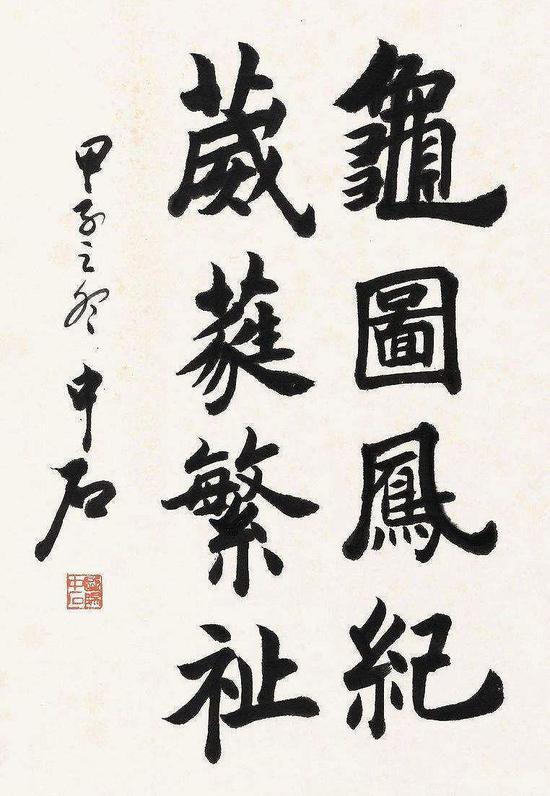 龜圖鳳紀
葳蕤繁祉
甲子之 中石
歐陽中石